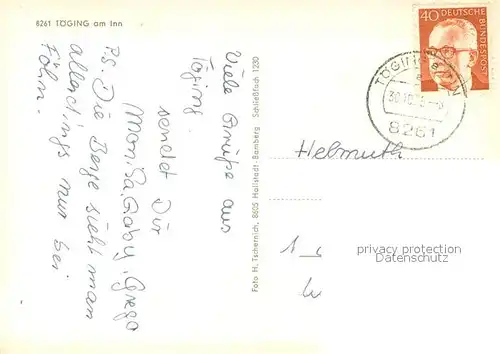 8261 TÖGING am Inn
Viele Grüße aus
Töging.
sendet Dir
Monika, Gaby, Grego
P.S. Die Berge sieht man
allerdings nur bei
Föhn.
Foto H. Tschernich, 8605 Hallstadt-Bamberg Schließfach 1230
40 DEUTSCHE BUNDESPOST
TÖGING a. INN
8261
Helmuth
privacy protection
Datenschutz